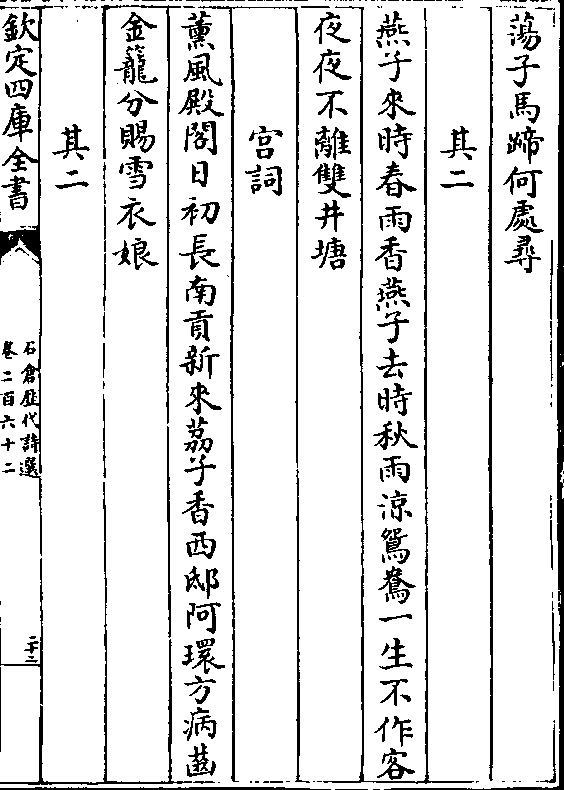 蕩子馬蹄何處尋
其二
燕子來時春雨香燕子去時秋雨涼鴛鴦一生不作客
夜夜不離雙井塘
宫詞
薰風殿閣日初長南貢新來荔子香西邸阿環方病齒
金籠分賜雪衣娘
其二
欽定四庫全書
石倉歴代詩選
卷二百六十二
二十三